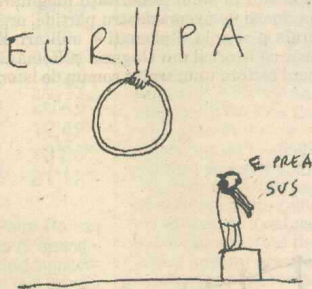 EUR PA
E PREA
SUS